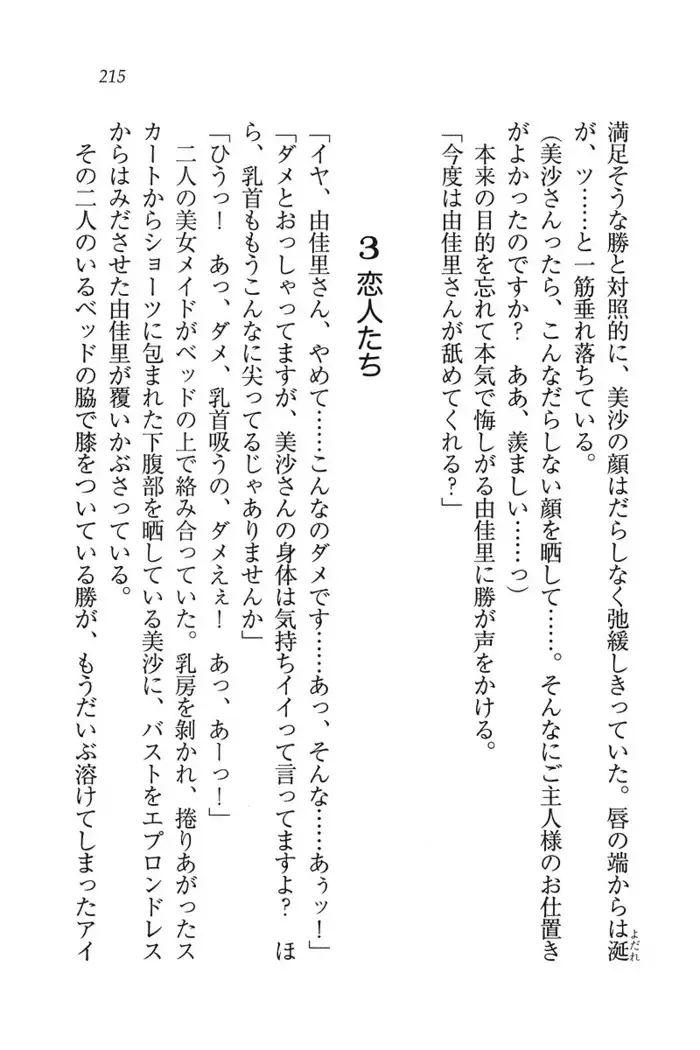 215
満足そうな勝と対照的に、美沙の顔はだらしなく弛緩しきっていた。唇の端からは涎
よだれ
が、ツ……と一筋垂れ落ちている。
(美沙さんったら、こんなだらしない顔を晒して……。そんなにご主人様のお仕置き
がよかったのですか? ああ、羨ましい……っ)
本来の目的を忘れて本気で悔しがる由佳里に勝が声をかける。
「今度は由佳里さんが舐めてくれる?」
3 恋人たち
「イヤ、由佳里さん、やめて……こんなのダメです……あっ、そんな……あぅッ!」
「ダメとおっしゃってますが、美沙さんの身体は気持ちイイって言ってますよ? ほ
ら、乳首ももうこんなに尖ってるじゃありませんか」
「ひうっ! あっ、ダメ、乳首吸うの、ダメえぇ! あっ、あーっ!」
二人の美女メイドがベッドの上で絡み合っていた。乳房を剝かれ、捲りあがったス
カートからショーツに包まれた下腹部を晒している美沙に、バストをエプロンドレス
からはみださせた由佳里が覆いかぶさっている。
その二人のいるベッドの脇で膝をついている勝が、もうだいぶ溶けてしまったアイ